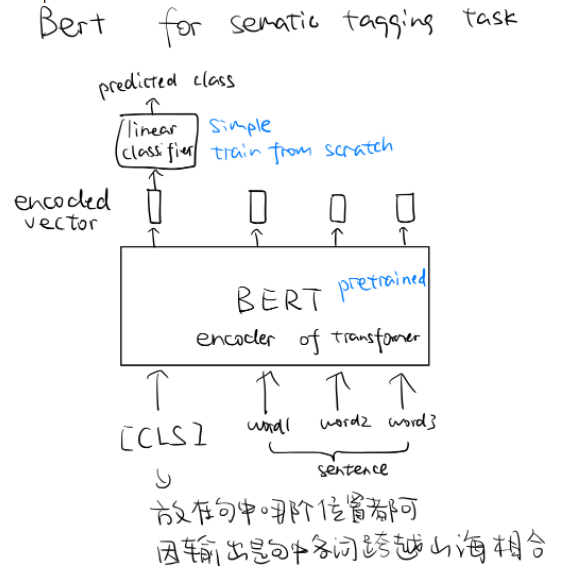 Bert for sematic tagging task
predicted class
linear classifier
simple
train from scratch
encoded vector
BERT pretrained
encoder of transformer
[CLS] word1 word2 word3
sentence
放在句中哪个位置都可
因输出是句中各词跨越山海相合